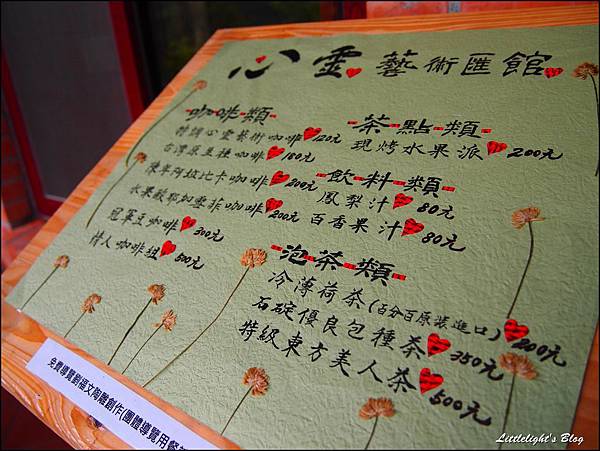 心靈藝術匯館
咖啡類
特調心靈藝術咖啡 120元
台灣原豆種咖啡 180元
陳年阿拉比卡咖啡 200元
水果酸耶加雪菲咖啡 200元
冠軍豆咖啡 300元
情人咖啡組 500元
茶點類
現烤水果派 200元
飲料類
鳳梨汁 80元
百香果汁 80元
泡茶類
冷薄荷茶(百分百原裝進口) 200元
石碇優良包種茶 350元
特級東方美人茶 500元
免費導覽劉福文陶雕創作(團體導覽用餐
Littlelight's Blog